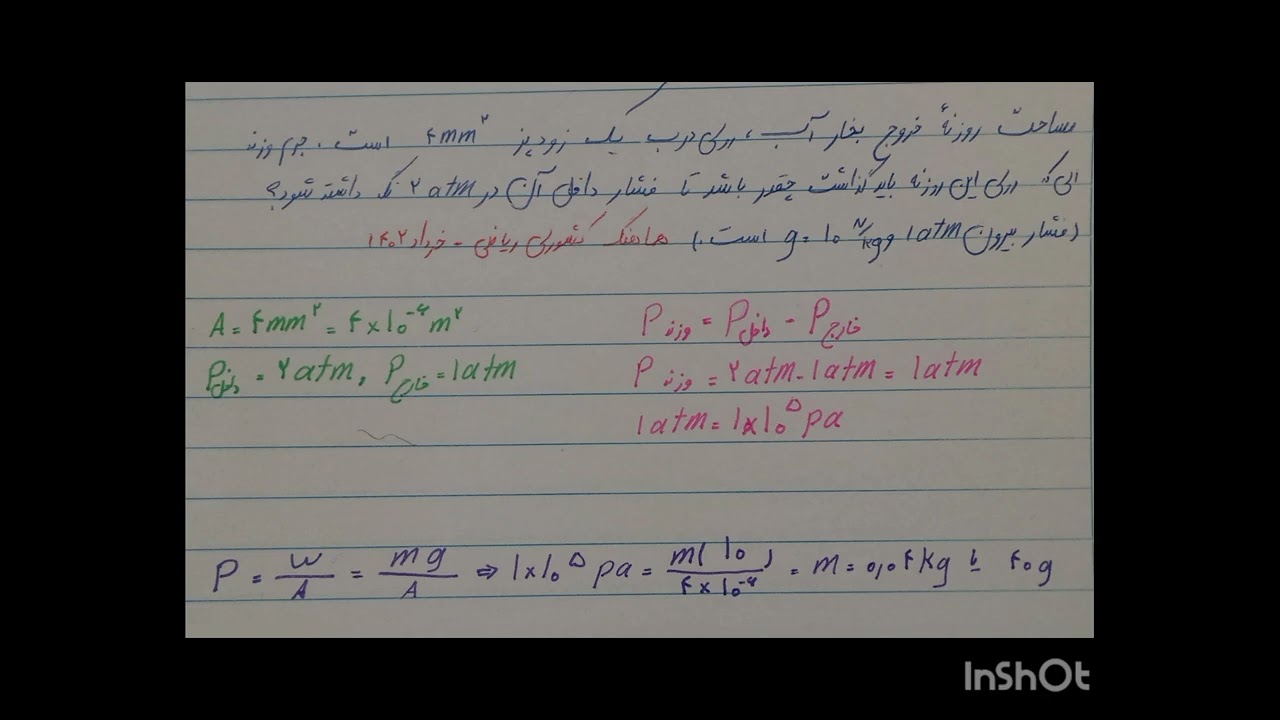 مساحت روزنهٔ خروج بخار آب، روی درب یک زودپز ۴mm² است. جرم وزنه
ای که روی این روزنه باید گذاشت چقدر باشد تا فشار داخل آن در ۲atm نگه داشته شود؟
(فشار بیرون ۱atm و g=۱۰ N/kg است.) هماهنگ کشوری ریاضی - خرداد ۱۴۰۲
A = ۴mm² = ۴×۱۰⁻⁶ m²
P داخل = ۲atm , P خارج = ۱atm
P وزنه = P داخل - P خارج
P وزنه = ۲atm - ۱atm = ۱atm
۱atm = ۱×۱۰⁵ pa
P = w/A = mg/A ⇒ ۱×۱۰⁵ pa = m(۱۰)/۴×۱۰⁻⁶ = m = ۰,۰۴kg یا ۴۰g
InShOt